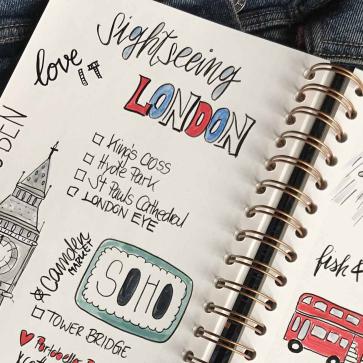 sightseeing
love IT
LONDON
King's Coss
Hyde Park
St Pauls Cathedral
LONDON EYE
& Camden
MARKET
SOHO
TOWER BRIDGE
Portobello
fish &